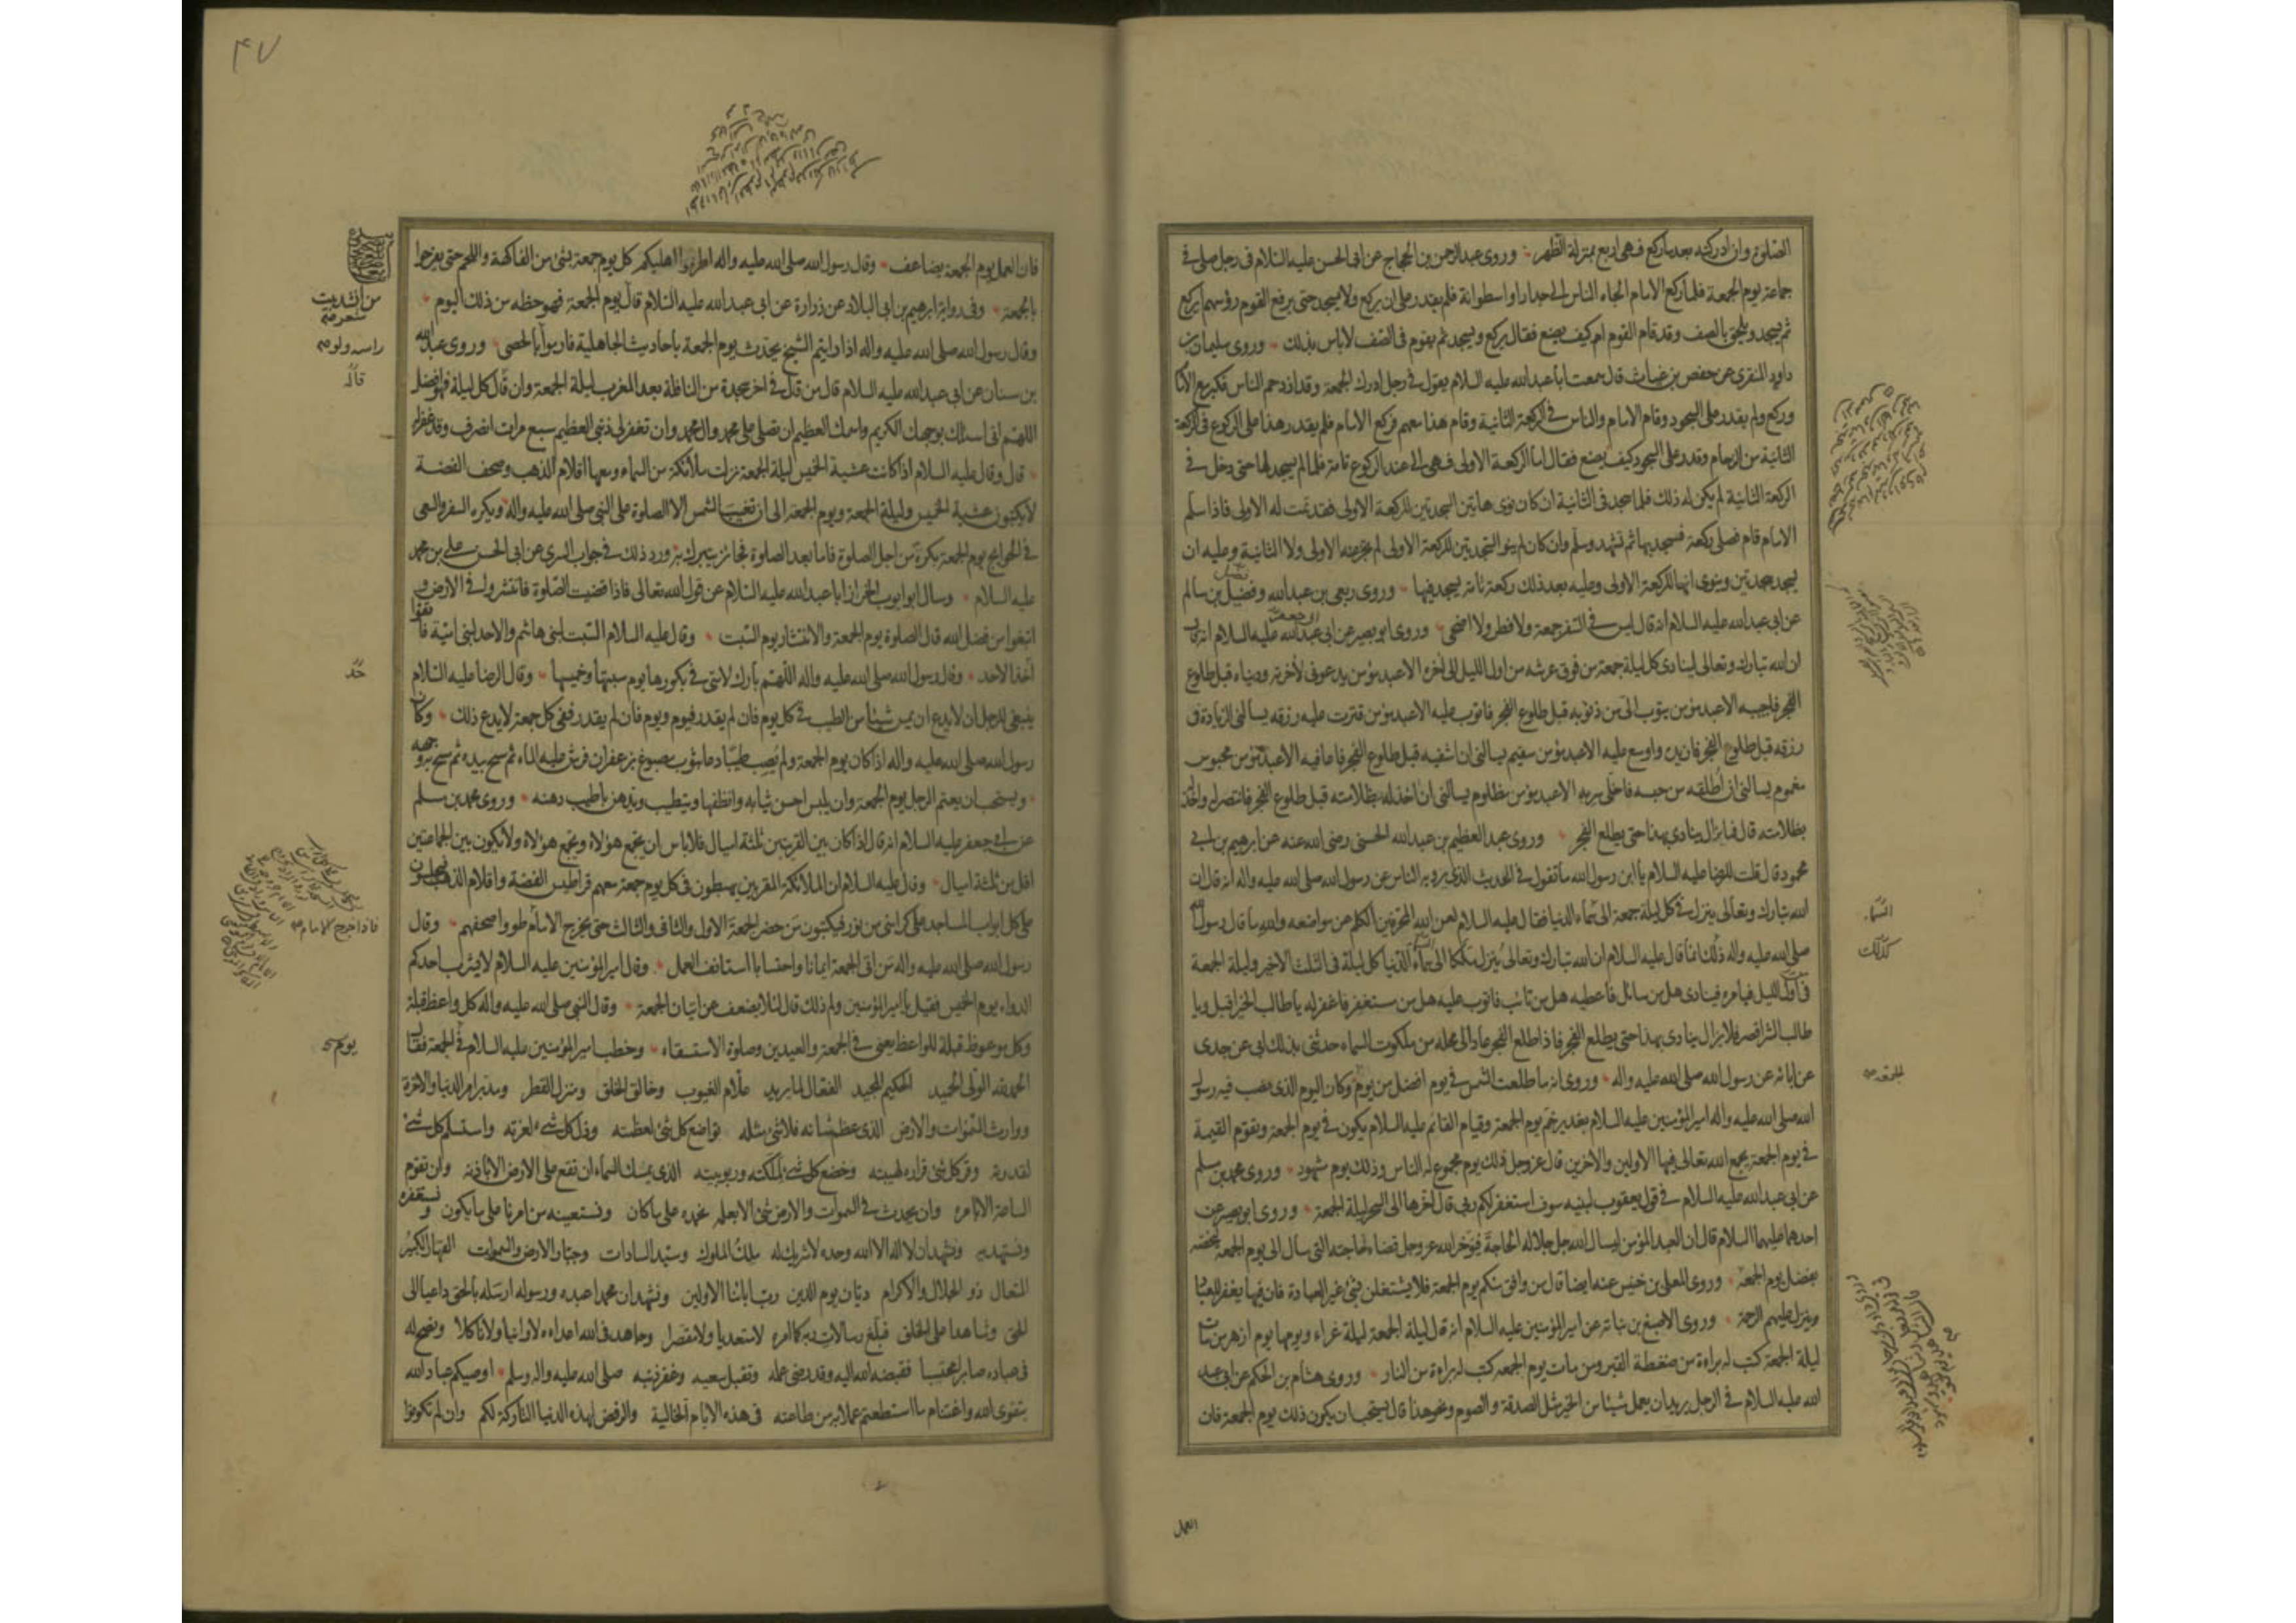 الصلوة وان ادركته بعد ما ركع فهى اربع بمنزلة الظهر وروى عبد الرحمن بن الحجاج عن ابى الحسن عليه السلام فى رجل صلى فى
جماعة يوم الجمعة فلما ركع الامام الجاه الناس الى جدار او اسطوانة فلم يقدر على ان يركع ولا يسجد حتى يرفع القوم رؤسهم ايركع
ثم يسجد ويلحق بالصف وقد قام القوم ام كيف يصنع فقال يركع ويسجد ثم يقوم فى الصف لا باس بذلك وروى سليمان بن
داود المنقرى عن حفص بن غياث قال سمعت ابا عبد الله عليه السلام يقول فى رجل ادرك الجمعة وقد ازدحم الناس فكبر مع الاما
وركع ولم يقدر على السجود وقام الامام والناس فى الركعة الثانية وقام هذا معهم فركع الامام فلم يقدر هذا على الركوع فى الركعة
الثانية من الزحام وقدر على السجود كيف يصنع فقال اما الركعة الاولى فهى الى عند الركوع تامة فلما لم يسجد لها حتى دخل فى
الركعة الثانية لم يكن له ذلك فلما سجد فى الثانية ان كان نوى هاتين السجدتين للركعة الاولى فقد تمت له الاولى فاذا سلم
الامام قام فصلى ركعة فسجد بها ثم تشهد وسلم وان كان لم ينو السجدتين للركعة الاولى لم تجز عنه الاولى ولا الثانية وعليه ان
يسجد سجدتين وينوى انهما للركعة الاولى وعليه بعد ذلك ركعة تامة يسجد فيها وروى ربعى بن عبد الله وفضيل بن سالم
عن ابى عبد الله عليه السلام انه قال ليس فى السفر جمعة ولا فطر ولا اضحى وروى ابو بصير عن ابى عبد الله عليه السلام انه قال
ان الله تبارك وتعالى لينادى كل ليلة جمعة من فوق عرشه من اول الليل الى اخره الا عبد مؤمن يدعونى لأخرته ودنياه قبل طلوع
الفجر فاجيبه الا عبد مؤمن يتوب الى من ذنوبه قبل طلوع الفجر فاتوب عليه الا عبد مؤمن قترت عليه رزقه يسالنى الزيادة فى
رزقه قبل طلوع الفجر فازيده واوسع عليه الا عبد مؤمن سقيم يسالنى ان اشفيه قبل طلوع الفجر فاعافيه الا عبد مؤمن محبوس
مغموم يسالنى ان اطلقه من حبسه فاخلى سربه الا عبد مؤمن مظلوم يسالنى ان اخذ له بظلامته قبل طلوع الفجر فانتصر له واخذ
بظلامته قال فما يزال ينادى بهذا حتى يطلع الفجر وروى عبد العظيم بن عبد الله الحسنى رضى الله عنه عن ابرهيم بن ابى
محمود قال قلت للرضا عليه السلام يا ابن رسول الله ما تقول فى الحديث الذى يرويه الناس عن رسول الله صلى الله عليه واله انه قال ان
الله تبارك وتعالى ينزل فى كل ليلة جمعة الى سماء الدنيا فقال عليه السلام لعن الله المحرفين الكلم عن مواضعه والله ما قال رسول الله
صلى الله عليه واله ذلك انما قال عليه السلام ان الله تبارك وتعالى ينزل ملكا الى سماء الدنيا كل ليلة فى الثلث الاخير وليلة الجمعة
فى اول الليل فيامره فينادى هل من سائل فاعطيه هل من تائب فاتوب عليه هل من مستغفر فاغفر له يا طالب الخير اقبل ويا
طالب الشر اقصر فلا يزال ينادى بهذا حتى يطلع الفجر فاذا طلع الفجر عاد الى محله من ملكوت السماء حدثنى بذلك ابى عن جدى
عن ابائه عن رسول الله صلى الله عليه واله وروى انه ما طلعت الشمس فى يوم افضل من يوم وكان اليوم الذى نصب فيه رسول
الله صلى الله عليه واله امير المؤمنين عليه السلام بغدير خم يوم الجمعة وقيام القائم عليه السلام يكون فى يوم الجمعة وتقوم القيمة
فى يوم الجمعة يجمع الله تعالى فيها الاولين والاخرين قال عز وجل ذلك يوم مجموع له الناس وذلك يوم مشهود وروى محمد بن مسلم
عن ابى عبد الله عليه السلام فى قول يعقوب لبنيه سوف استغفر لكم ربى قال اخرها الى السحر ليلة الجمعة وروى ابو بصير عن
احدهما عليهما السلام قال ان العبد المؤمن ليسال الله جل جلاله الحاجة فيؤخر الله عز وجل قضاء حاجته التى سال الى يوم الجمعة ليخصه
بفضل يوم الجمعة وروى المعلى بن خنيس عنه ايضا قال من وافق منكم يوم الجمعة فلا يشتغلن بشئ غير العبادة فان فيها يغفر للعباد
وينزل عليهم الرحمة وروى الاصبغ بن نباته عن امير المؤمنين عليه السلام انه قال ليلة الجمعة ليلة غراء ويومها يوم ازهر من مات
ليلة الجمعة كتب له براءة من ضغطة القبر ومن مات يوم الجمعة كتب له براءة من النار وروى هشام بن الحكم عن ابى عبد
الله عليه السلام فى الرجل يريد ان يعمل شيئا من الخير مثل الصدقة والصوم ونحو هذا قال يستحب ان يكون ذلك يوم الجمعة فان
السماء
كذلك
الجمعة
العمل
۴۷
فان العمل يوم الجمعة يضاعف وقال رسول الله صلى الله عليه واله اطرفوا اهليكم كل يوم جمعة بشئ من الفاكهة واللحم حتى يفرحوا
بالجمعة وفى رواية ابرهيم بن ابى البلاد عن زرارة عن ابى عبد الله عليه السلام قال يوم الجمعة فهو حظه من ذلك اليوم
وقال رسول الله صلى الله عليه واله اذا رايتم الشيخ يحدث يوم الجمعة باحاديث الجاهلية فارموا بالحصى وروى عبد الله
بن سنان عن ابى عبد الله عليه السلام قال من قال فى اخر سجدة من النافلة بعد المغرب ليلة الجمعة وان قال كل ليلة فهو افضل
اللهم انى اسئلك بوجهك الكريم واسمك العظيم ان تصلى على محمد وال محمد وان تغفر لى ذنبى العظيم سبع مرات انصرف وقد غفر له
قال وقال عليه السلام اذا كانت عشية الخميس ليلة الجمعة نزلت ملائكة من السماء ومعها اقلام الذهب وصحف الفضة
لا يكتبون عشية الخميس وليلة الجمعة ويوم الجمعة الى ان تغيب الشمس الا الصلوة على النبى صلى الله عليه واله ويكره السفر والسعى
فى الحوايج يوم الجمعة بكرة من اجل الصلوة فاما بعد الصلوة فجائز يتبرك به ورد ذلك فى جواب السرى عن ابى الحسن على بن محمد
عليه السلام وسال ابو ايوب الخزاز ابا عبد الله عليه السلام عن قول الله تعالى فاذا قضيت الصلوة فانتشروا فى الارض و
ابتغوا من فضل الله قال الصلوة يوم الجمعة والانتشار يوم السبت وقال عليه السلام السبت لبنى هاشم والاحد لبنى امية فاتقوا
اخذ الاحد وقال رسول الله صلى الله عليه واله اللهم بارك لامتى فى بكورها يوم سبتها وخميسها وقال الرضا عليه السلام
ينبغى للرجل ان لا يدع ان يمس شيئا من الطيب فى كل يوم فان لم يقدر فيوم ويوم فان لم يقدر ففى كل جمعة لا يدع ذلك وكان
رسول الله صلى الله عليه واله اذا كان يوم الجمعة ولم يصب طيبا دعا بثوب مصبوغ بزعفران فرش عليه الماء ثم مسح بيده ثم مسح به وجهه
ويستحب ان يعتم الرجل يوم الجمعة وان يلبس احسن ثيابه وانظفها ويتطيب ويدهن باطيب دهنه وروى محمد بن مسلم
عن ابى جعفر عليه السلام انه قال اذا كان بين القريتين ثلثة اميال فلا باس ان يجمع هؤلاء ويجمع هؤلاء ولا يكون بين الجماعتين
اقل من ثلثة اميال وقال عليه السلام ان الملائكة المقربين يهبطون فى كل يوم جمعة معهم قراطيس الفضة واقلام الذهب فيجلسون
على كل ابواب المساجد على كراسى من نور فيكتبون من حضر الجمعة الاول والثانى والثالث حتى يخرج الامام طووا صحفهم وقال
رسول الله صلى الله عليه واله من اتى الجمعة ايمانا واحتسابا استانف العمل وقال امير المؤمنين عليه السلام لا يشرب احدكم
الدواء يوم الخميس فقيل يا امير المؤمنين ولم ذلك قال لئلا يضعف عن اتيان الجمعة وقال النبى صلى الله عليه واله كل واعظ قبلة
وكل موعوظ قبلة للواعظ يعنى فى الجمعة والعيدين وصلوة الاستسقاء وخطب امير المؤمنين عليه السلام فى الجمعة فقال
الحمد لله الولى الحميد الحكيم المجيد الفعال لما يريد علام الغيوب وخالق الخلق ومنزل القطر ومدبر امر الدنيا والاخرة
ووارث السموات والارض الذى عظم شانه فلا شئ مثله تواضع كل شئ لعظمته وذل كل شئ لعزته واستسلم كل شئ
لقدرته وقر كل شئ قراره لهيبته وخضع كل شئ لملكته وربوبيته الذى يمسك السماء ان تقع على الارض الا باذنه وان تقوم
الساعة الا بامره وان يحدث فى السموات والارض شئ الا بعلمه نحمده على ما كان ونستعينه من امرنا على ما يكون ونستغفره
ونستهديه ونشهد ان لا اله الا الله وحده لا شريك له ملك الملوك وسيد السادات وجبار الارض والسموات القهار الكبير
المتعال ذو الجلال والاكرام ديان يوم الدين رب ابائنا الاولين ونشهد ان محمدا عبده ورسوله ارسله بالحق داعيا الى
الحق وشاهدا على الخلق فبلغ رسالات ربه كما امره لا متعديا ولا مقصرا وجاهد فى الله اعداءه لا وانيا ولا ناكلا ونصح له
فى عباده صابرا محتسبا فقبضه الله اليه وقد رضى عمله وتقبل سعيه وغفر ذنبه صلى الله عليه واله وسلم اوصيكم عباد الله
بتقوى الله واغتنام ما استطعتم عملا به من طاعته فى هذه الايام الخالية والرفض لهذه الدنيا التاركة لكم وان لم تكونوا
من انشد بيت
شعر
راسه ولو
فاذا خرج الامام
يومكم